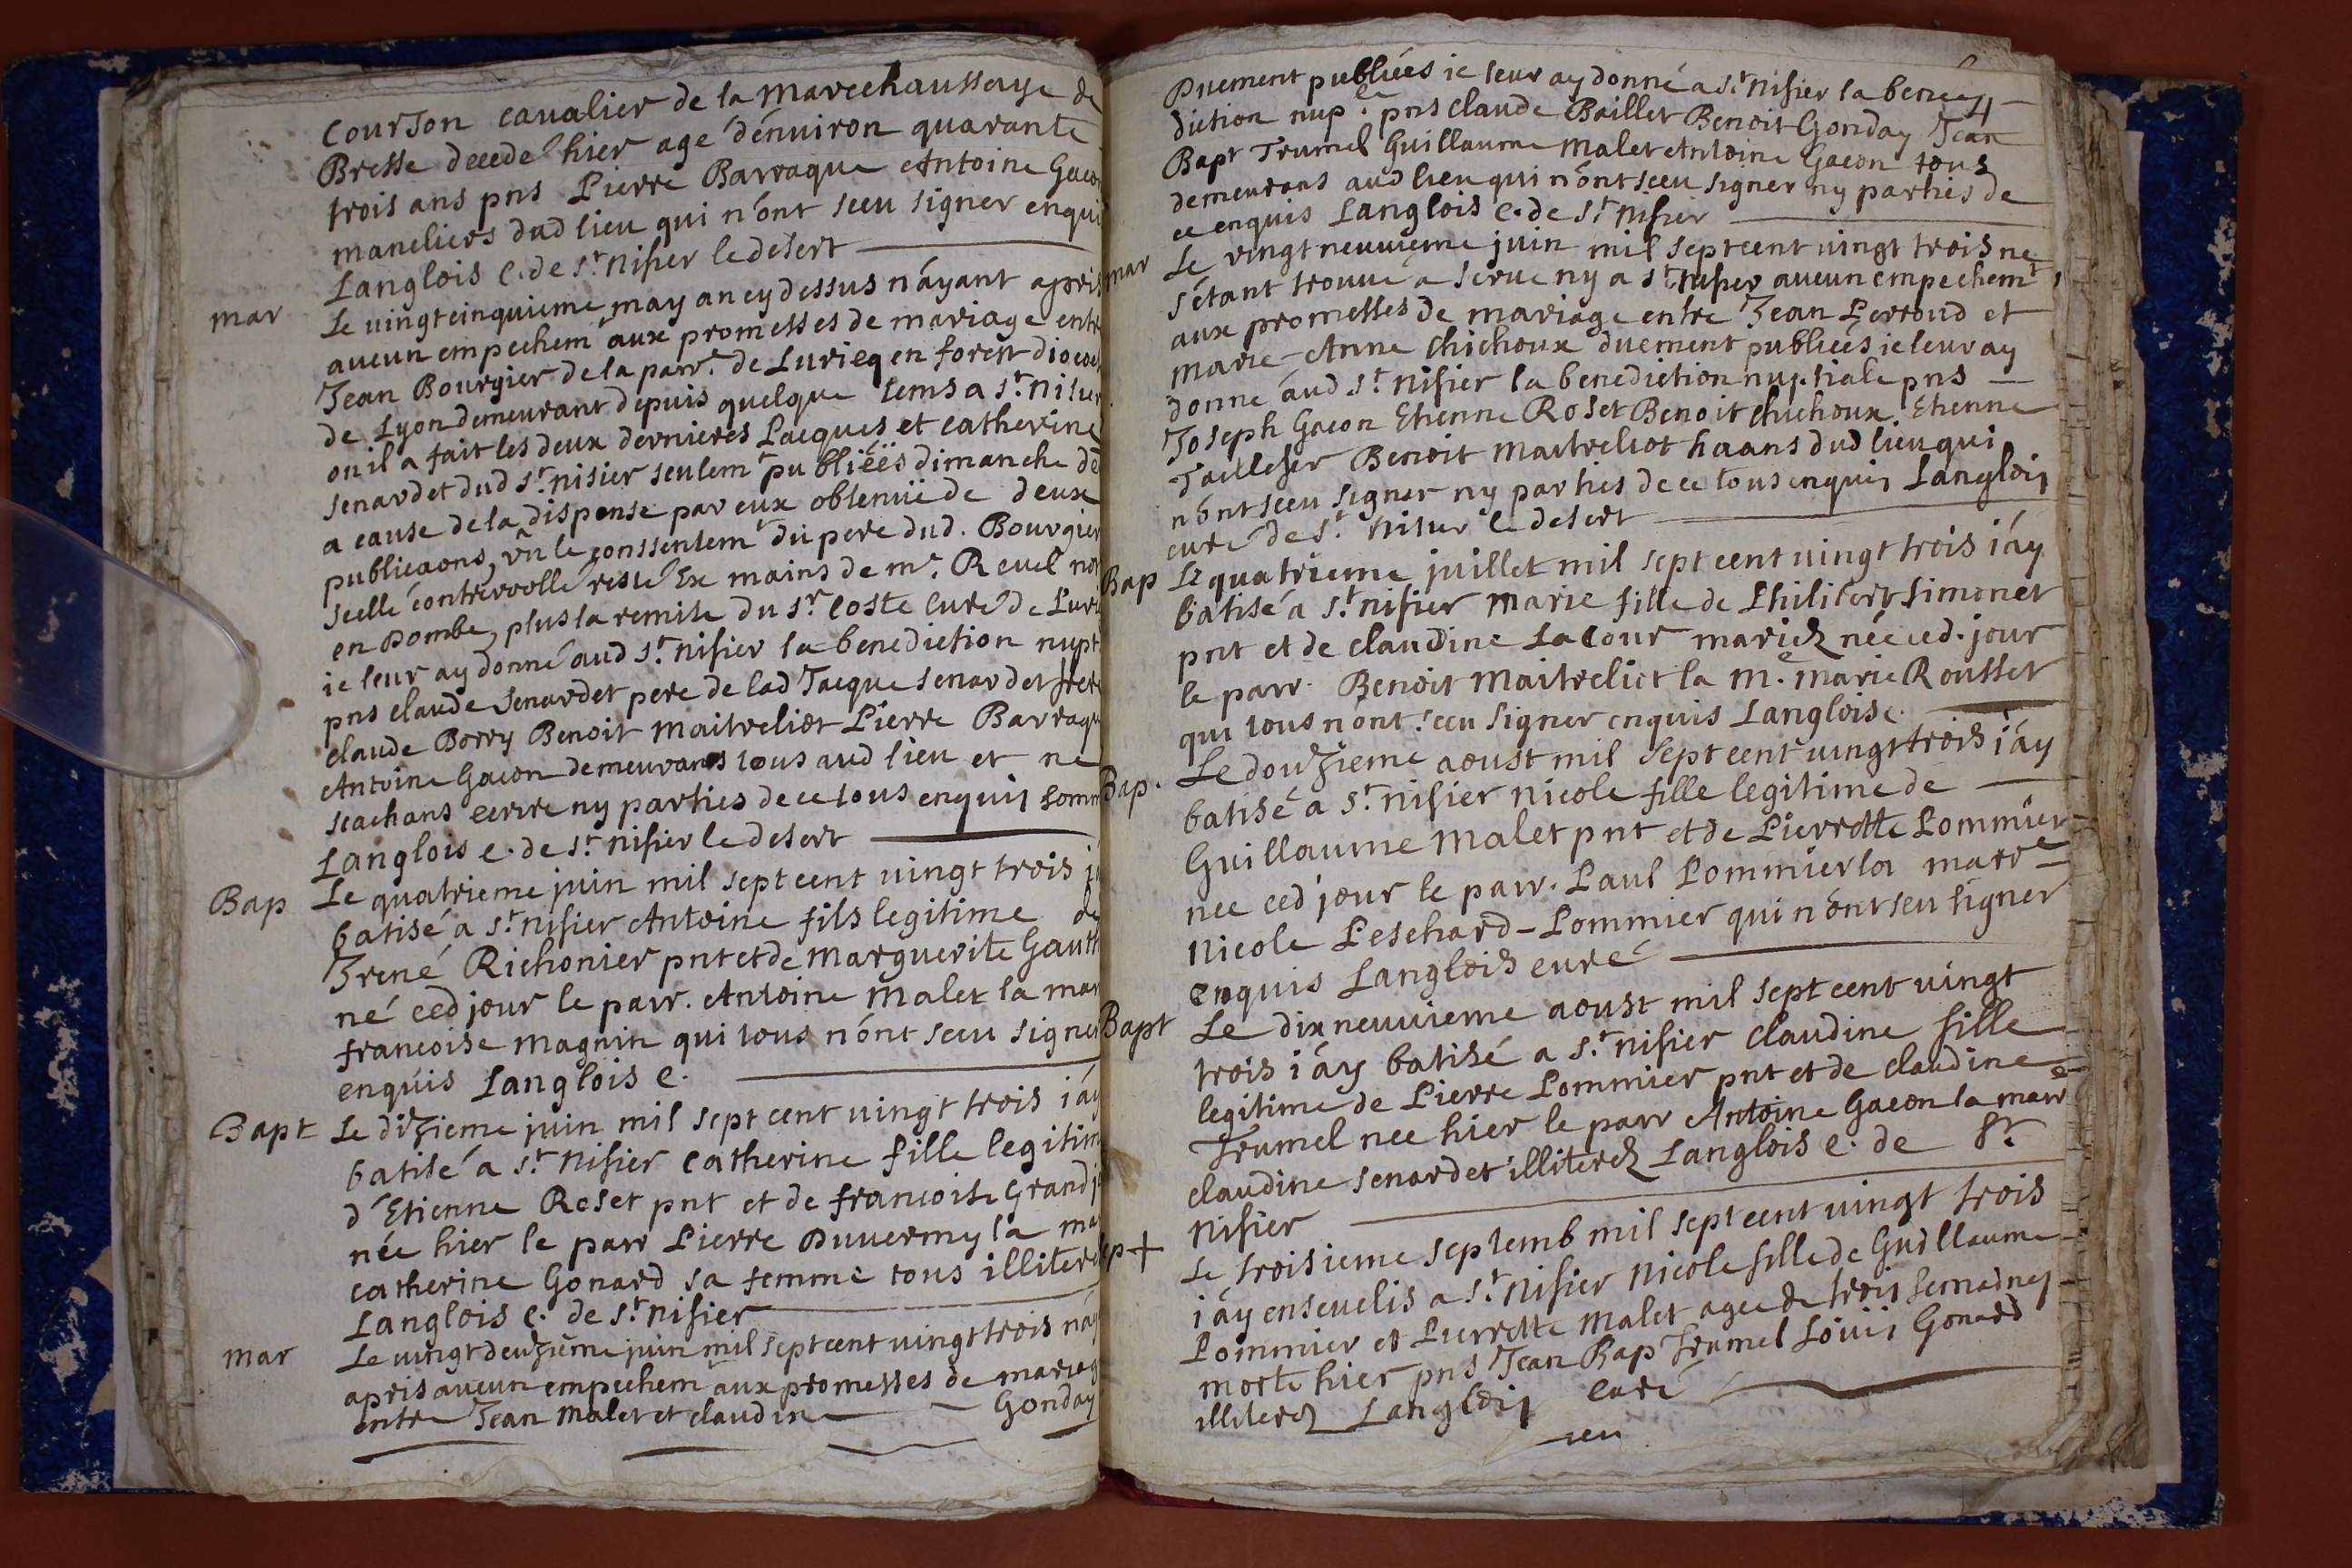 Courson cavalier de la Mareehaussaye de
Bresse decedé hier agé d'énuiron quarante
trois ans pns Pierre Barraque Antoine Gacon
maneliers dud lieu qui n'ont sceu signer enqui
Langlois c. de St Nisier le desert
mar Le uingt cinquieme may an cy dessus n'áyant apris
aucun empechemt aux promesses de mariage entre
Jean Bourgier de la parr. de Lurieq en forest dioces
de Lyon demeurant depuis quelque tems a St Nisier
ou il a fait les deux dernieres Pacques et catherine
senardet dud St nisier seulemt publiéés dimanche de
a cause de la dispense par eux obtenuë de deux
publicaons, vû le conssentemt du pere dud. Bourgier
scellé contrerollé resté Ex mains de mr. Revel not
en Dombe, plus la remise du Sr Coste Curé de Luri
ie leur ay donné aud St Nisier la benediction nupt
pns claude Senardet pere de lad Jacque senardet frere
claude Borry Benoit Maitreliot Pierre Barraqu
Antoine Gacon demeurans tous aud lieu et ne
scachans ecrire ny parties de ce tous enquis somm
Langlois c. de St Nisier le desert
Bap Le quatrieme juin mil sept cent uingt trois j
batisé a St Nisier Antoine fils legitime de
Irené Richonier pnt et de Marguerite Gautt
né ced jour le parr. Antoine Malet la mar
francoise Magnin qui tous n'ónt sceu signer
enquis Langlois c.
Bapt Le dizieme juin mil sept cent uingt trois i'áy
batisé a St Nisier Catherine fille legitim
d'Etienne Roset pnt et de francoise Grandj
née hier le parr Pierre Duvermy la ma
catherine Gonard sa femme tous illitere
Langlois c. de St Nisier
mar Le uingt deuzieme juin mil sept cent uingt trois n'áy
apris aucun empechemt aux promesses de mariag
entre Jean Malet et claudine Gonday
Duement publiées ie leur ay donné a St Nisier la bené
diction nuple. pns claude Baillet Benoit Gonday Jean
Bapt Trumel Guillaume Malet Antoine Gacon tous
demeurans aud lieu qui n'ónt sceu signer ny parties de
ce enquis Langlois c. de St Nisier
mar Le vingt neuuieme juin mil sept cent uingt trois ne
s'étant trouué a Serue ny a St Nisier aucun empechemt
aux promesses de mariage entre Jean Perroud et
Marie-Anne Chichoux duement publiées ie leur ay
donné aud St Nisier la benediction nuptiale pns
Joseph Gacon Etienne Roset Benoit chichoux Etienne
Benoit Maitreliot haans dud lieu qui
n'ónt sceu signer ny parties de ce tous enquis Langlois
curé de St Nisier le desert
Bap Le quatrieme juillet mil sept cent uingt trois i'áy
batisé a St Nisier Marie fille de Philibert Simonet
pnt et de claudine LaCour mariez née ced. jour
le parr. Benoit Maitreliot la Me. Marie Rousset
qui tous n'ónt sceu signer enquis Langlois c.
Bap. Le douzieme aoust mil sept cent uingt trois i'áy
batisé a St Nisier Nicole fille legitime de
Guillaume Malet pnt et de Pierrette Pommier
nee ced jour le parr. Paul Pommier la marre
Nicole Peschard-Pommier qui n'ónt seu signer
enquis Langlois curé
Bapt Le dix neuuieme aoust mil sept cent uingt
trois i'áy batisé a St Nisier claudine fille
legitime de Pierre Pommier pnt et de claudine
Trumel nee hier le parr Antoine Gacon la marre
claudine senardet illiterez Langlois c. de St
Nisier
ep + Le troisieme septemb mil sept cent uingt trois
i'áy enseuelis a St Nisier Nicole fille de Guillaume
Pommier et Pierrette Malet agee de trois semaines
morte hier pns Jean Bap Trumel Loüis Gonard
illiterez Langlois curé